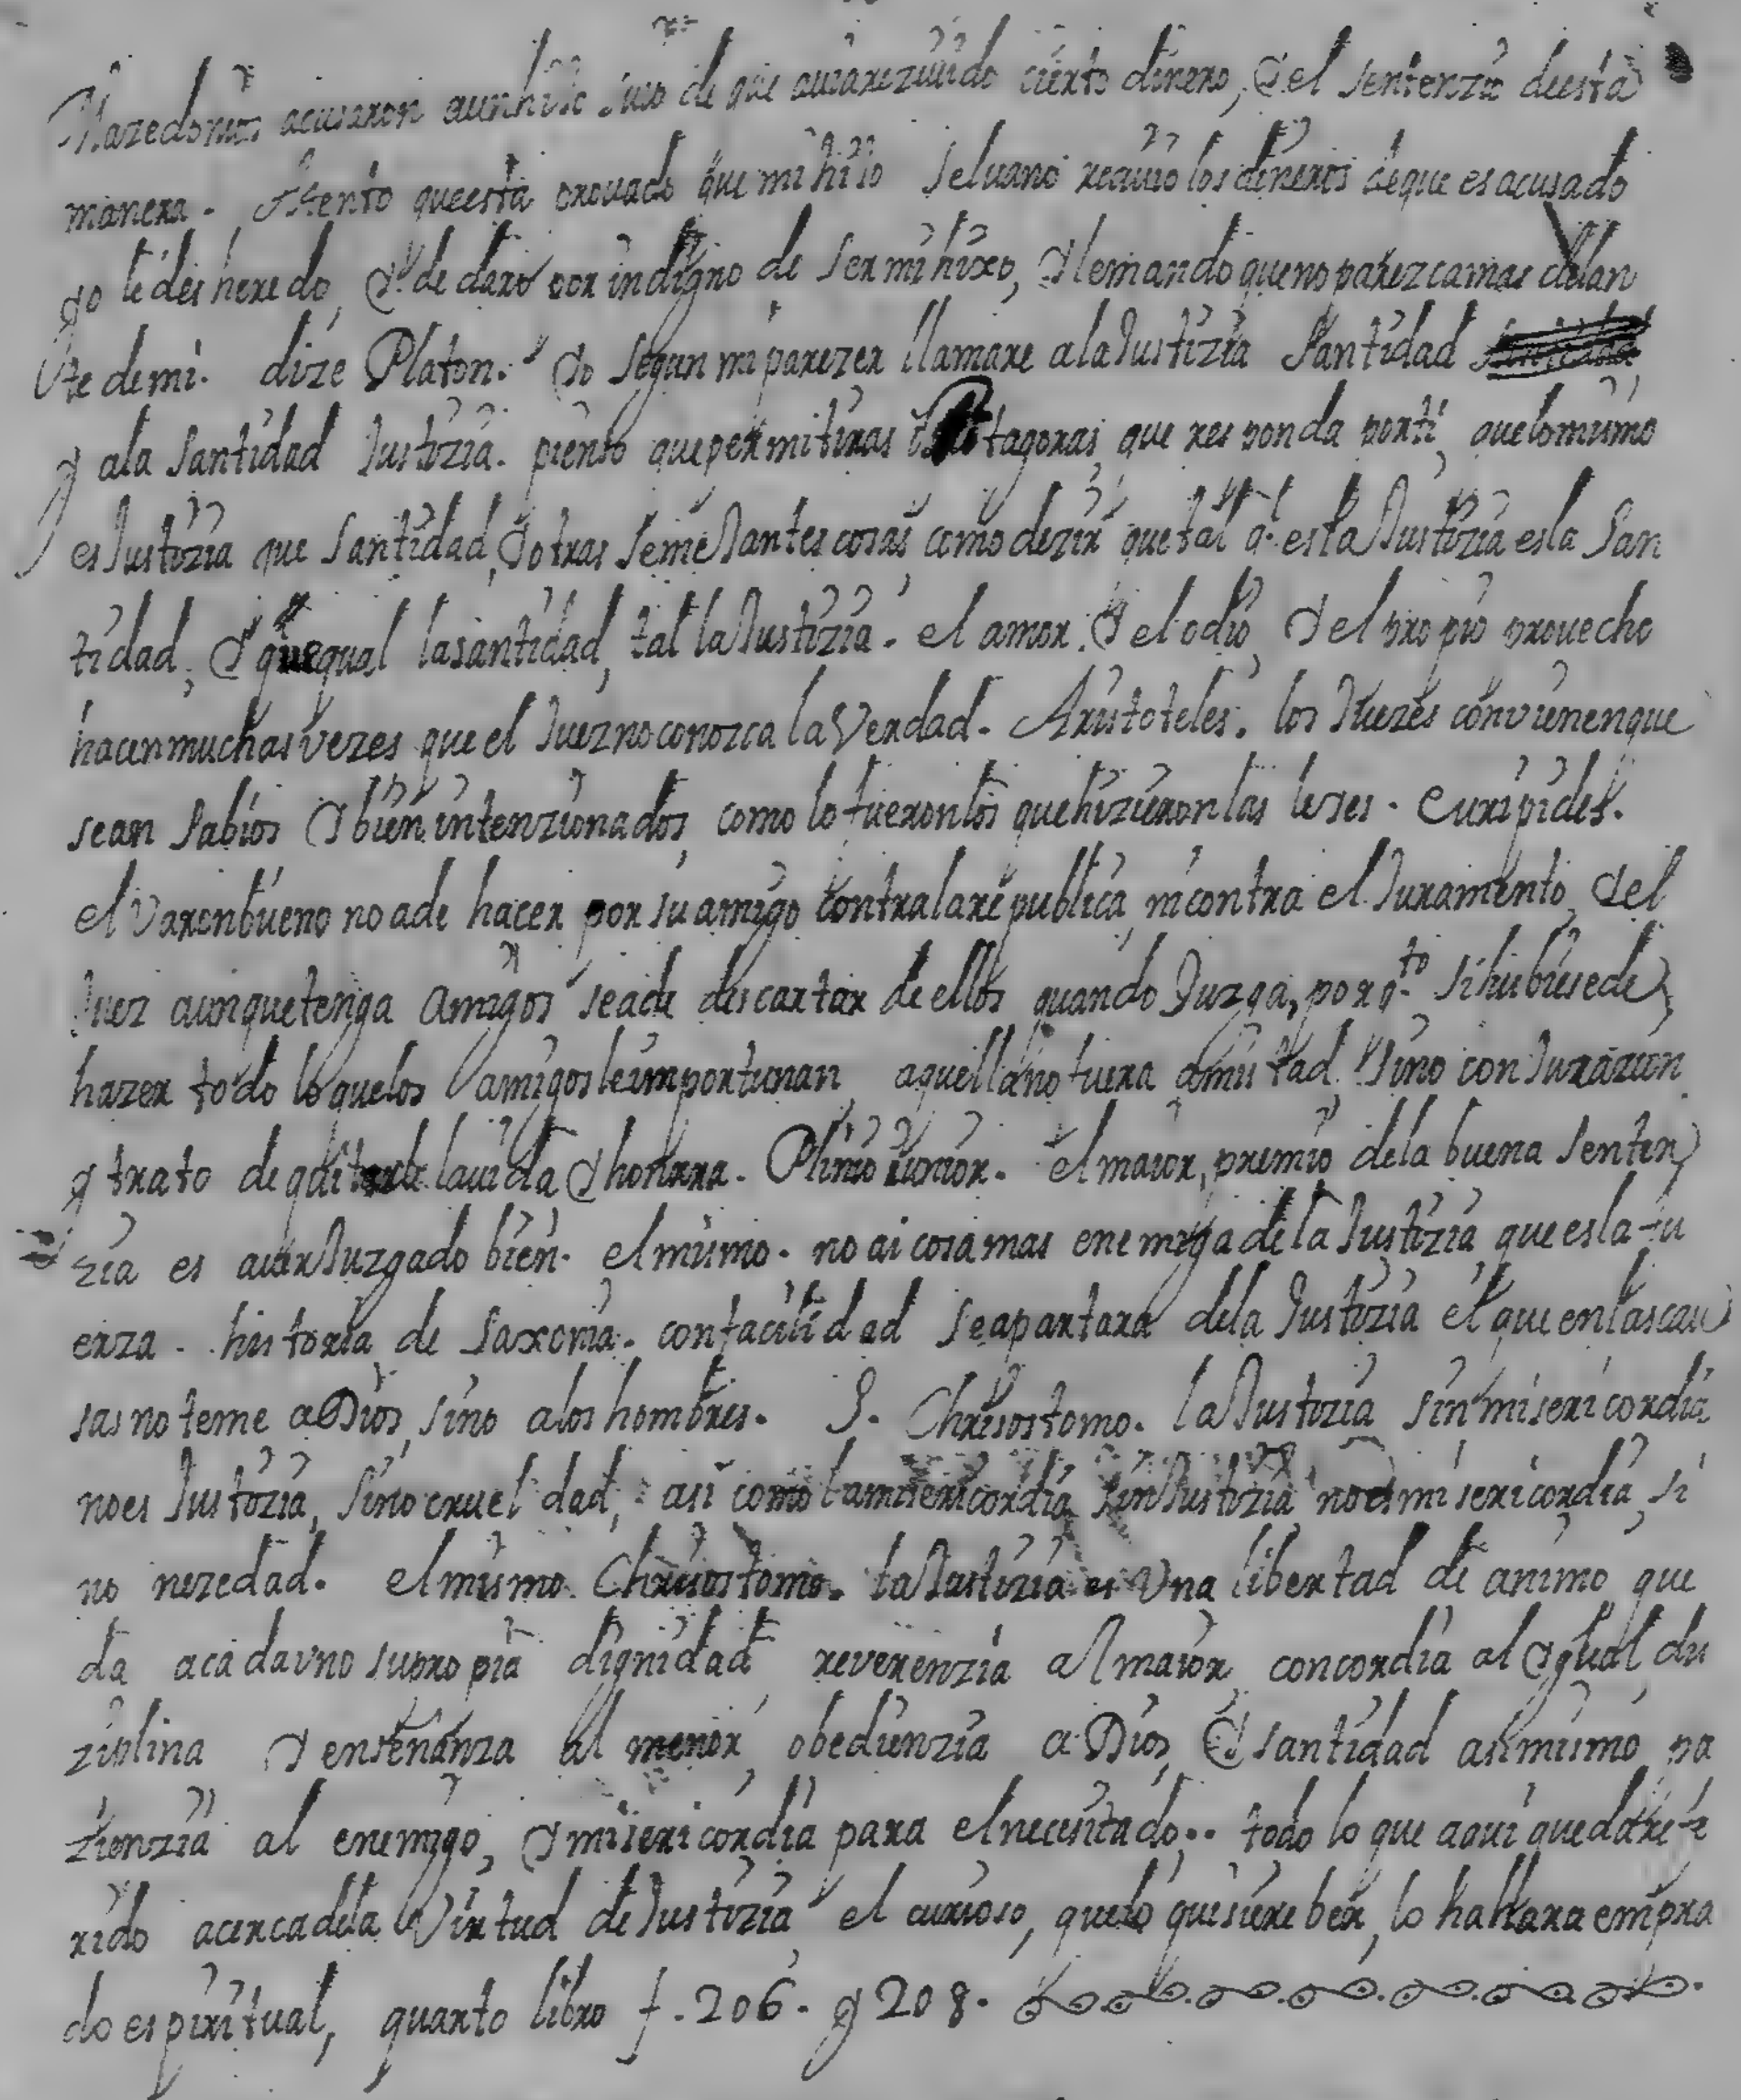 Mazedonios acusaron aunhiJo suio de que auiarezuuido cierto dinero, y el sentenzio deesta
manera. Atento queesta prouado que mi hiJo Seluano reciuio los dineros deque es acusado
yo le des heredo, y le declaro por indigno de ser mi hixo, y lemando queno parezcamas delan
te demi. dize Platon. Yo segun mi parezer llamare ala Justizia Santidad
y ala Santidad Justizia. pienso quepermitiras Protagoras, que res ponda porti, quelomismo
es Justizia que Santidad, y otras semeJantes cosas, como dezir que tal q. esla Justizia esla San
tidad, y quequal lasantidad, tal la Justizia. el amor. y el odio, y el pro pio prouecho
hacenmuchasvezes que el Juez no conozca la Verdad. Aristoteles. los Juezes convienenque
sean Sabios y bien intenzionados, como lo fueronlos quehizieronlas leyes. Euripides.
el Varonbueno no ade hacer por su amigo contralarepublica, nicontra el Juramento, y el
Juez aunquetenga Amigos seade descartar de ellos quando Juzga, porq.to si hubiesede
hazer todo lo quelos amigos leimportunan, aquellano fuera amistad. sino con Jurazion
y trato de quitarle lauida y honrra. Plinio iunior. el maior, premio dela buena senten
zia es auerJuzgado bien. el mismo. no ai cosa mas enemiga de la Justizia que es la fu
erza. historia de Saxonia. confacilidad seapartara dela Justizia el que enlascau
sas no teme a Dios, sino alos hombres. S. Chrisostomo. la Justizia sin misericordia
noes Justizia, sino cruel dad, asi como lamisericordia sin Justizia no es misericordia, si
no nezedad. el mismo Chrisostomo. la Justizia es Una libertad de animo, que
da acadauno supropia dignidad, reverenzia al maior, concordia al ygual, dis
ziplina y enseñanza al menor, obedienzia a Dios, y santidad asimismo, pa
zienzia al enemigo, y misericordia para elnecesitado.. todo lo que aqui quedarefe
rido acercadela Virtud de Justizia el curioso, quelo quisiere ber, lo hallara empra
do espiritual, quarto libro f. 206. y 208.